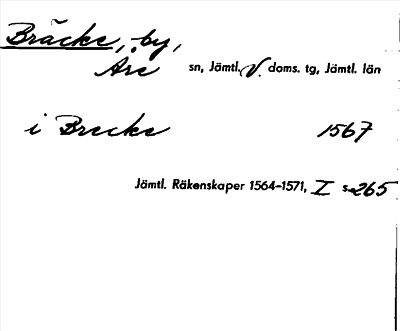 Bräcke, by,
Åre sn, Jämtl. V. doms. tg, Jämtl. län
i Brecke 1567
Jämtl. Räkenskaper 1564-1571, I s. 265